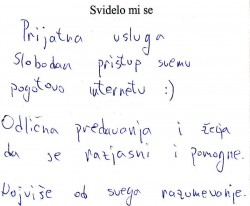 Svidelo mi se
Prijatna usluga
Slobodan pristup svemu
pogotovo internetu :)
Odlična predavanja i želja
da se razjasni i pomogne.
Najviše od svega razumevanje.